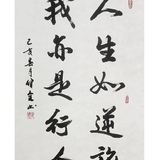 人生如逆旅
我亦是行人
己亥